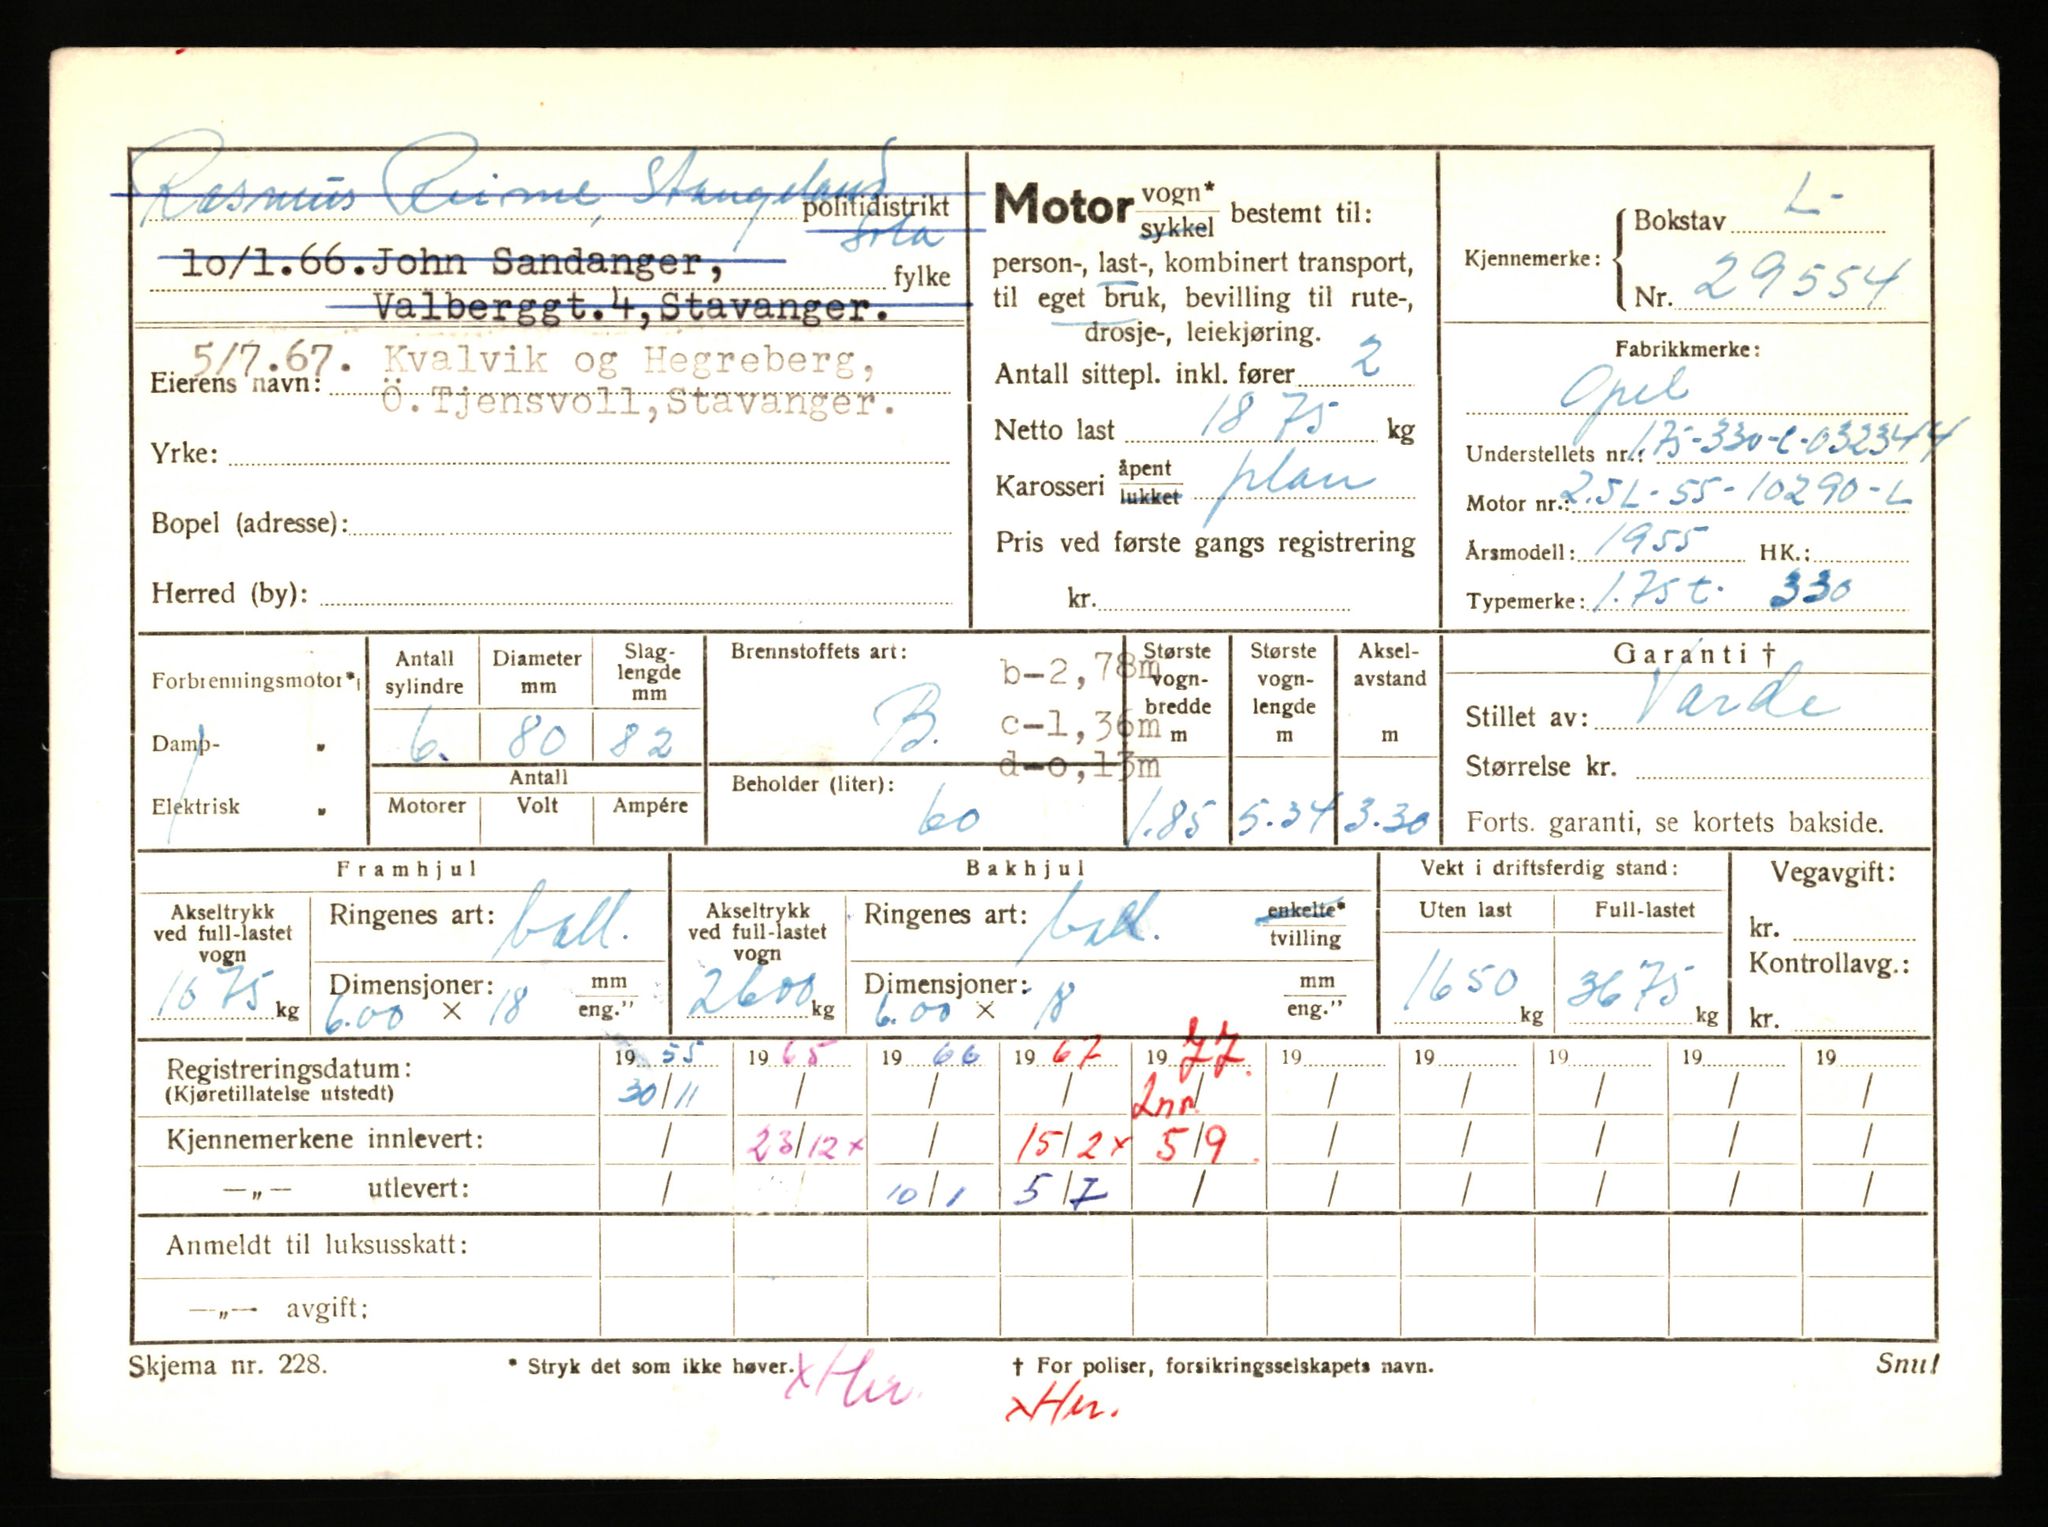 Rasmus Reime, Stangeland
politidistrikt
Sola
10/1.66. John Sandanger,
fylke
Valberggt.4, Stavanger.
5/7.67. Kvalvik og Hegreberg,
Eierens navn:
Ö.Tjensvoll, Stavanger.
Yrke:
Bopel (adresse):
Herred (by):
Motor vogn* sykkel bestemt til:
person-, last-, kombinert transport,
til eget bruk, bevilling til rute-,
drosje-, leiekjøring.
Antall sittepl. inkl. fører 2
Netto last 1875 kg
Karosseri åpent lukket plan
Pris ved første gangs registrering
kr.
Kjennemerke: Bokstav L-
Nr. 29554
Fabrikkmerke:
Opel
Understellets nr.: 175-330-L-032344
Motor nr.: 2.5L-55-10290-L
Årsmodell: 1955 HK.:
Typemerke: 1.75 t. 330
Forbrenningsmotor*
Damp- „
Elektrisk „
Antall sylindre 6.
Diameter mm 80
Slaglengde mm 82
Antall
Motorer Volt Ampére
Brennstoffets art:
B.
b-2,78m
c-1,36m
d-0,13m
Beholder (liter):
60
Største vogn-bredde m 1.85
Største vogn-lengde m 5.34
Aksel-avstand m 3.30
Garanti †
Stillet av: Varde
Størrelse kr.
Forts. garanti, se kortets bakside.
Framhjul
Akseltrykk ved full-lastet vogn
1075 kg
Ringenes art: ball.
Dimensjoner: mm eng."
6.00 × 18
Bakhjul
Akseltrykk ved full-lastet vogn
2600 kg
Ringenes art: ball. enkelte* tvilling
Dimensjoner: mm eng."
6.00 × 18
Vekt i driftsferdig stand:
Uten last Full-lastet
1650 kg 3675 kg
Vegavgift:
kr.
Kontrollavg.:
kr.
Registreringsdatum: 19 55 19 65 19 66 19 67 19 77. 19 19 19 19 19
(Kjøretillatelse utstedt) 30/11 / / / 2nr/ / / / / /
Kjennemerkene innlevert: / 23/12 x / 15/2 x 5/9. / / / / /
—„— utlevert: / / 10/1 5/7 / / / / / /
Anmeldt til luksusskatt:
—„— avgift:
Skjema nr. 228. * Stryk det som ikke høver. † For poliser, forsikringsselskapets navn. Snu!
xHn.
xHn.